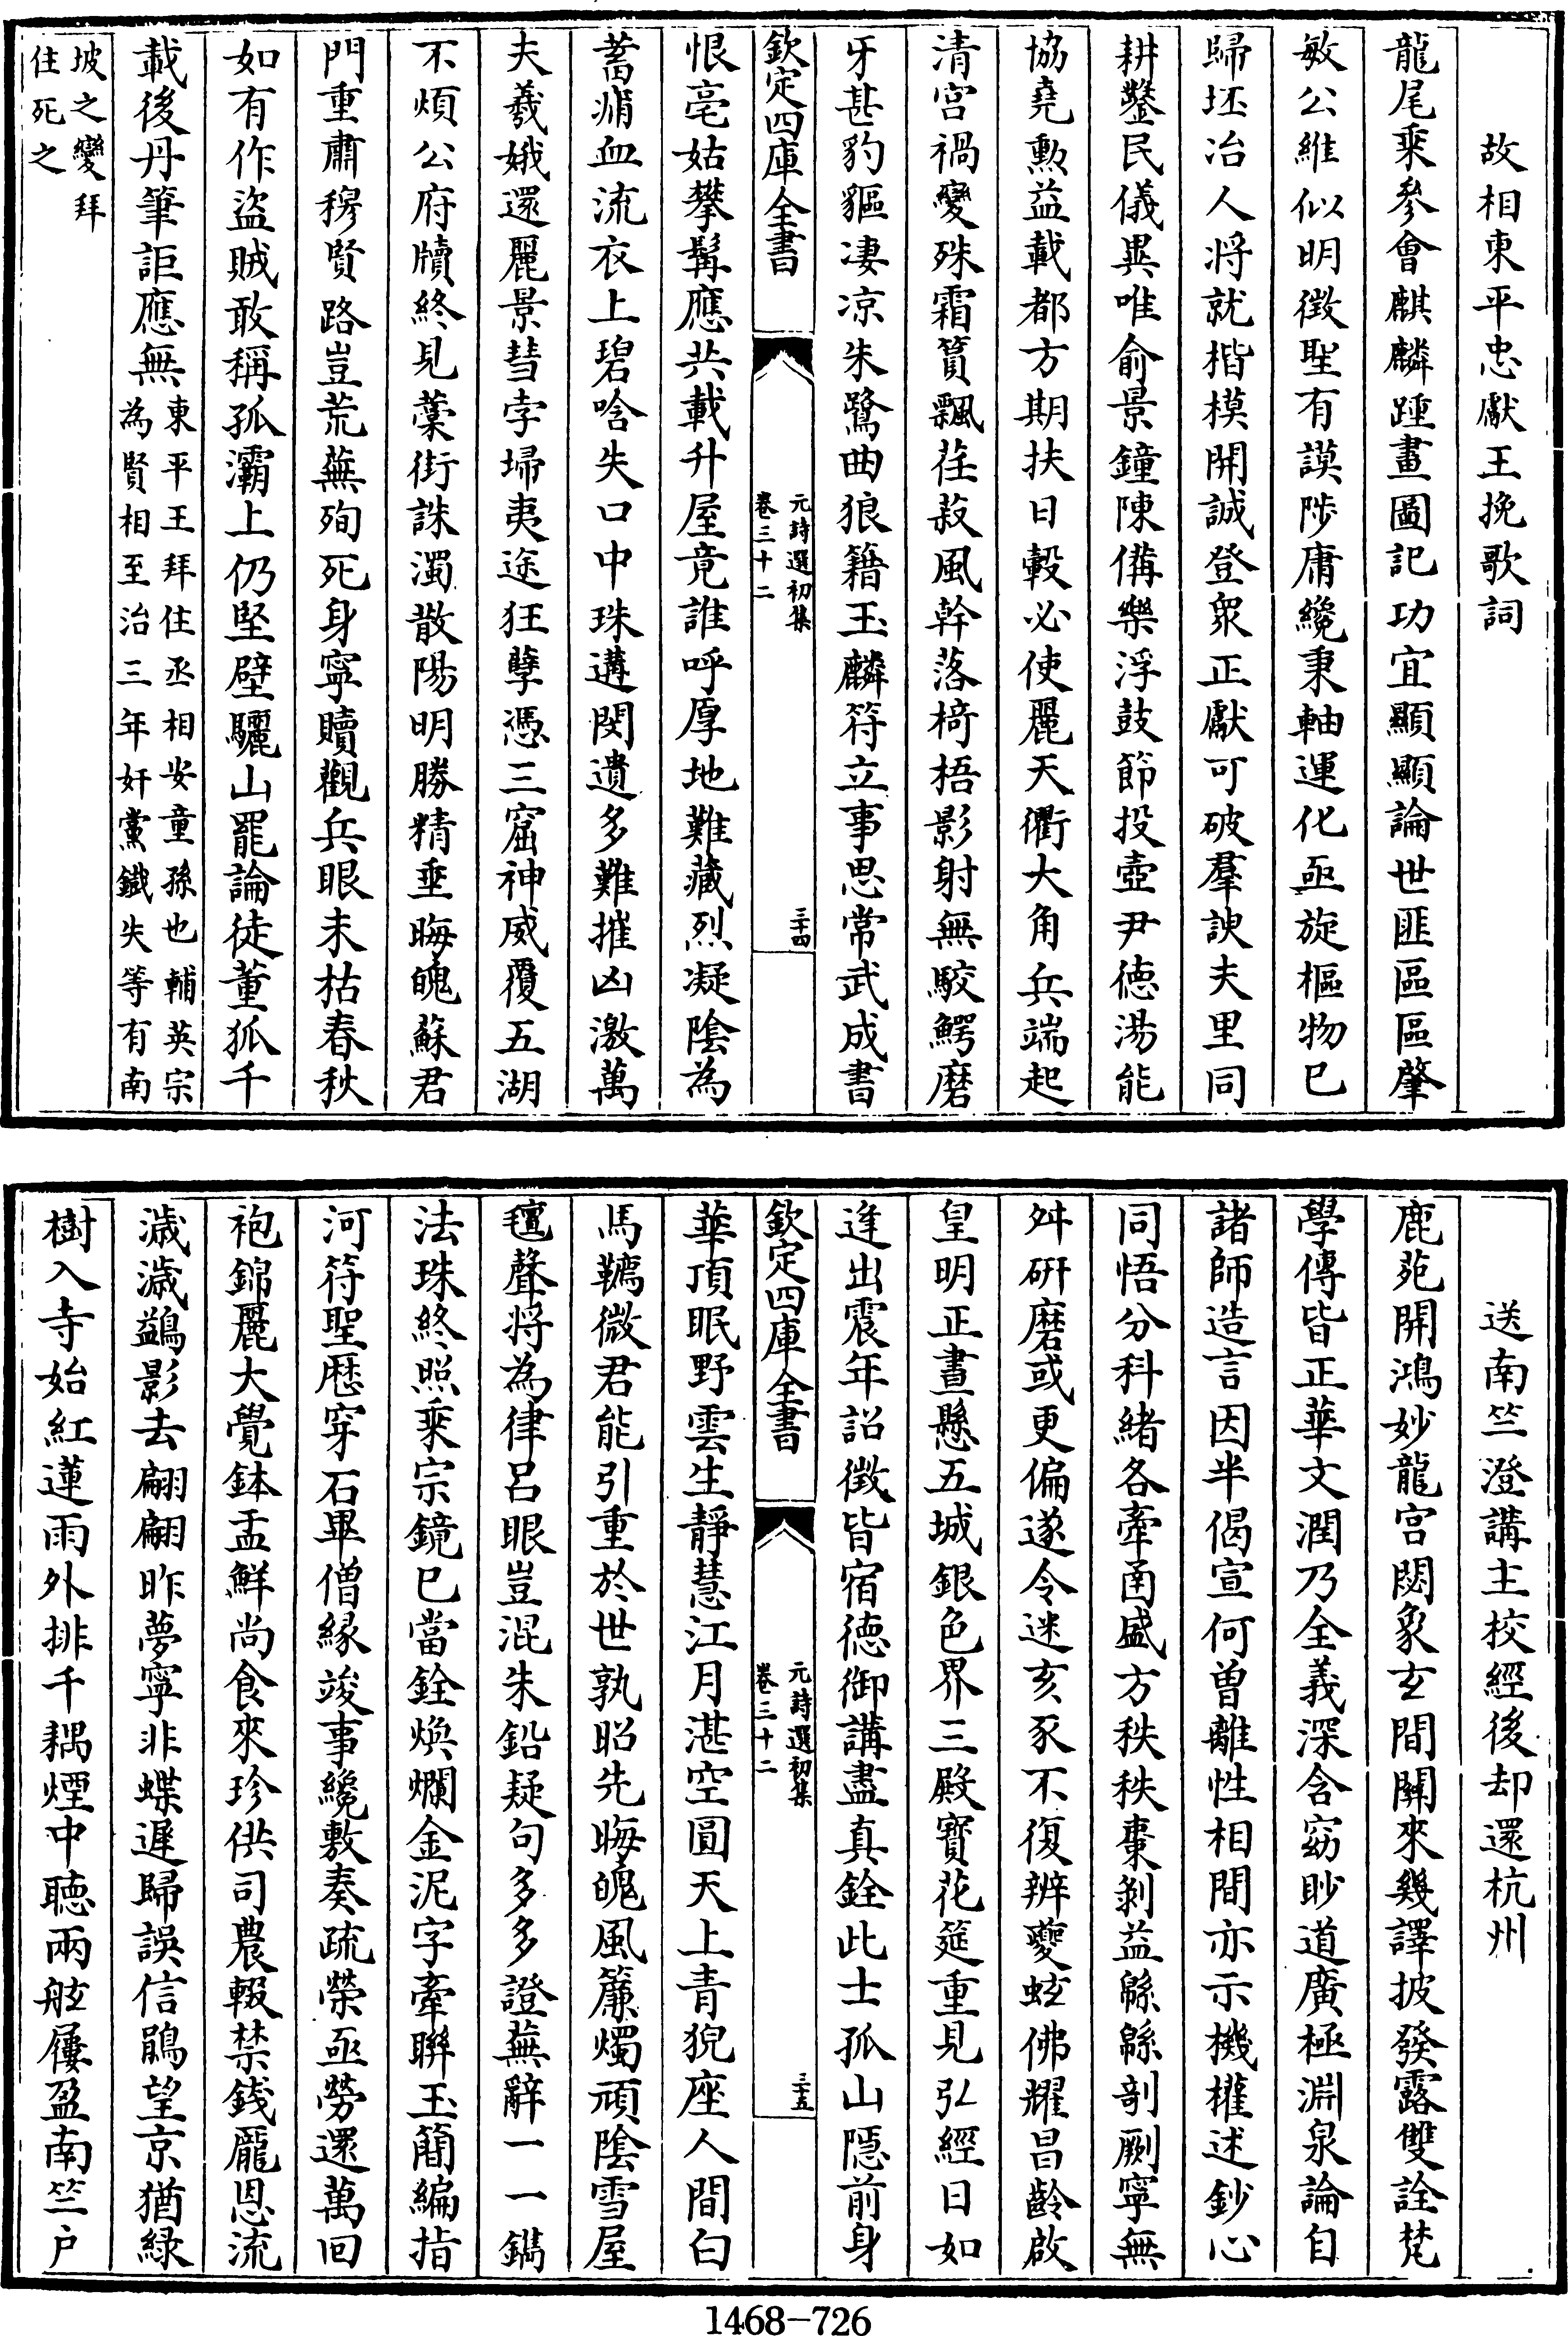 故相東平忠獻王挽歌詞
龍尾乘參會麒麟踵畫圖記功宜顯顯論世匪區區肇
敏公維似明徵聖有謨陟庸纔秉軸運化亟旋樞物已
歸坯冶人將就楷模開誠登衆正獻可破羣諛夫里同
耕鑿民儀異唯俞景鐘陳備樂浮鼓節投壺尹德湯能
協堯勲益載都方期扶日轂必使麗天衢大角兵端起
清宮禍變殊霜篔飄荏菽風幹落椅梧影射無駮鰐磨
牙甚豹貙凄凉朱鷺曲狼籍玉麟符立事思常武成書
欽定四庫全書
元詩選初集
卷三十二
三十四
恨亳姑攀髯應共載升屋竟誰呼厚地難藏烈凝陰為
蓄痟血流衣上碧唅失口中珠遘閔遺多難摧凶激萬
夫羲娥還麗景彗孛埽夷途狂孽憑三窟神威覆五湖
不煩公府牘終見藁街誅濁散陽明勝精垂晦魄蘇君
門重肅穆賢路豈荒蕪殉死身寧贖觀兵眼未枯春秋
如有作盜賊敢稱孤灞上仍堅壁驪山罷論徒董狐千
載後丹筆詎應無
東平王拜住丞相安童孫也輔英宗
為賢相至治三年奸黨鐵失等有南
坡之變拜
住死之
送南竺澄講主校經後却還杭州
鹿苑開鴻妙龍宮閟象玄間關來幾譯披發露雙詮梵
學傳皆正華文潤乃全義深含窈眇道廣極淵泉論自
諸師造言因半偈宣何曾離性相間亦示機權述鈔心
同悟分科緒各牽函盛方秩秩棗剥益緜緜剞劂寧無
舛研磨或更偏遂令迷亥豕不復辨夔蚿佛耀昌齡啟
皇明正晝懸五城銀色界三殿寳花筵重見弘經日如
逢出震年詔徵皆宿德御講盡真銓此士孤山隱前身
欽定四庫全書
元詩選初集
卷三十二
三十五
華頂眠野雲生靜慧江月湛空圓天上青猊座人間白
馬韉微君能引重於世孰昭先晦魄風簾燭頑陰雪屋
氊聲將為律呂眼豈混朱鉛疑句多多證蕪辭一一鐫
法珠終照乘宗鏡已當銓煥爛金泥字牽聨玉簡編指
河符聖厯穿石畢僧緣竣事纔敷奏疏榮亟勞還萬回
袍錦麗大覺鉢盂鮮尚食來珍供司農輟禁錢龎恩流
濊濊鷁影去翩翩昨夢寧非蝶遲歸誤信鵑望京猶緑
樹入寺始紅蓮雨外排千耦煙中聽兩舷屨盈南竺户
1468-726